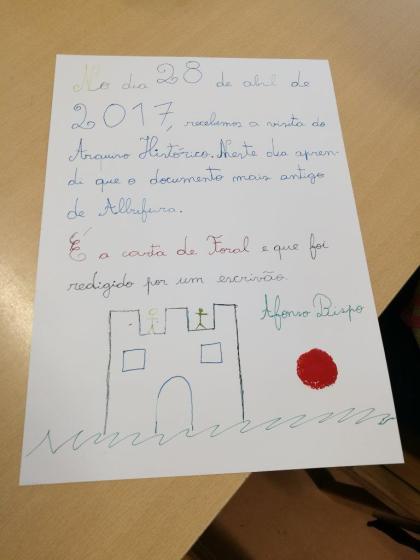 No dia 28 de abril de
2017, recebemos a visita do
Arquivo Histórico. Neste dia apren-
di que o documento mais antigo
de Albufura.
É a carta de Foral e que foi
redigido por um escrivão.
Afonso Bispo